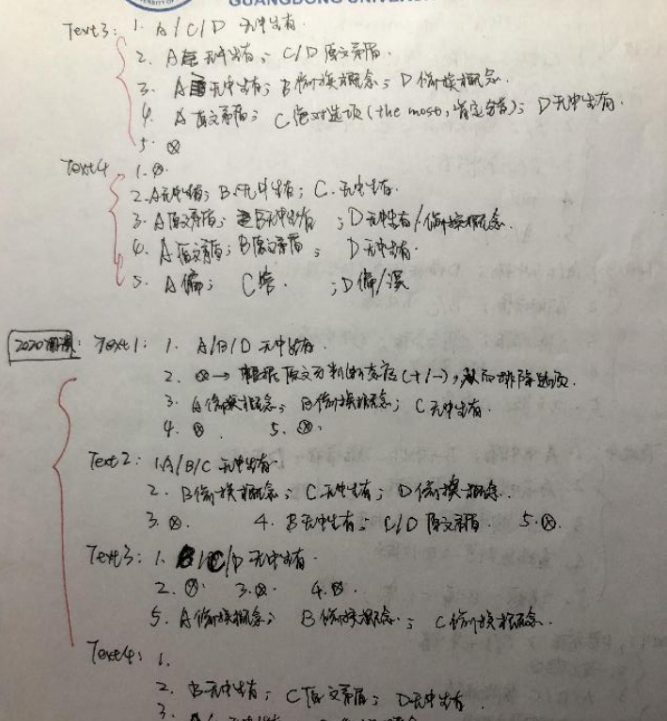 GUANGDONG UNIVERSITY
Text3: 1. A/C/D 无中生有.
2. A 无中生有; C/D 原文矛盾.
3. A 无中生有; B偷换概念; D偷换概念.
4. A 原文矛盾; C绝对选项(the most, 肯定错); D无中生有.
5. ⊗
Text4 1. ⊗.
2. A无中生有; B.无中生有; C.无中生有.
3. A原文矛盾; B无中生有 ; D无中生有/偷换概念.
4. A原文矛盾; B原文矛盾; D无中生有.
5. A偏; C窄. ; D偏/深
2020 : Text1: 1. A/B/D 无中生有.
2. ⊗→根据原文可判断态度(+/-), 从而排除选项.
3. A偷换概念; B偷换概念; C无中生有.
4. ⊗ 5. ⊗.
Text2: 1. A/B/C 无中生有.
2. B偷换概念; C.无中生有; D偷换概念.
3. ⊗. 4. B无中生有; C/D原文矛盾. 5. ⊗.
Text3: 1. B/C/D 无中生有.
2. ⊗. 3. ⊗. 4. ⊗.
5. A偷换概念; B偷换概念; C偷换概念.
Text4: 1.
2. B无中生有; C原文矛盾; D无中生有.
3.